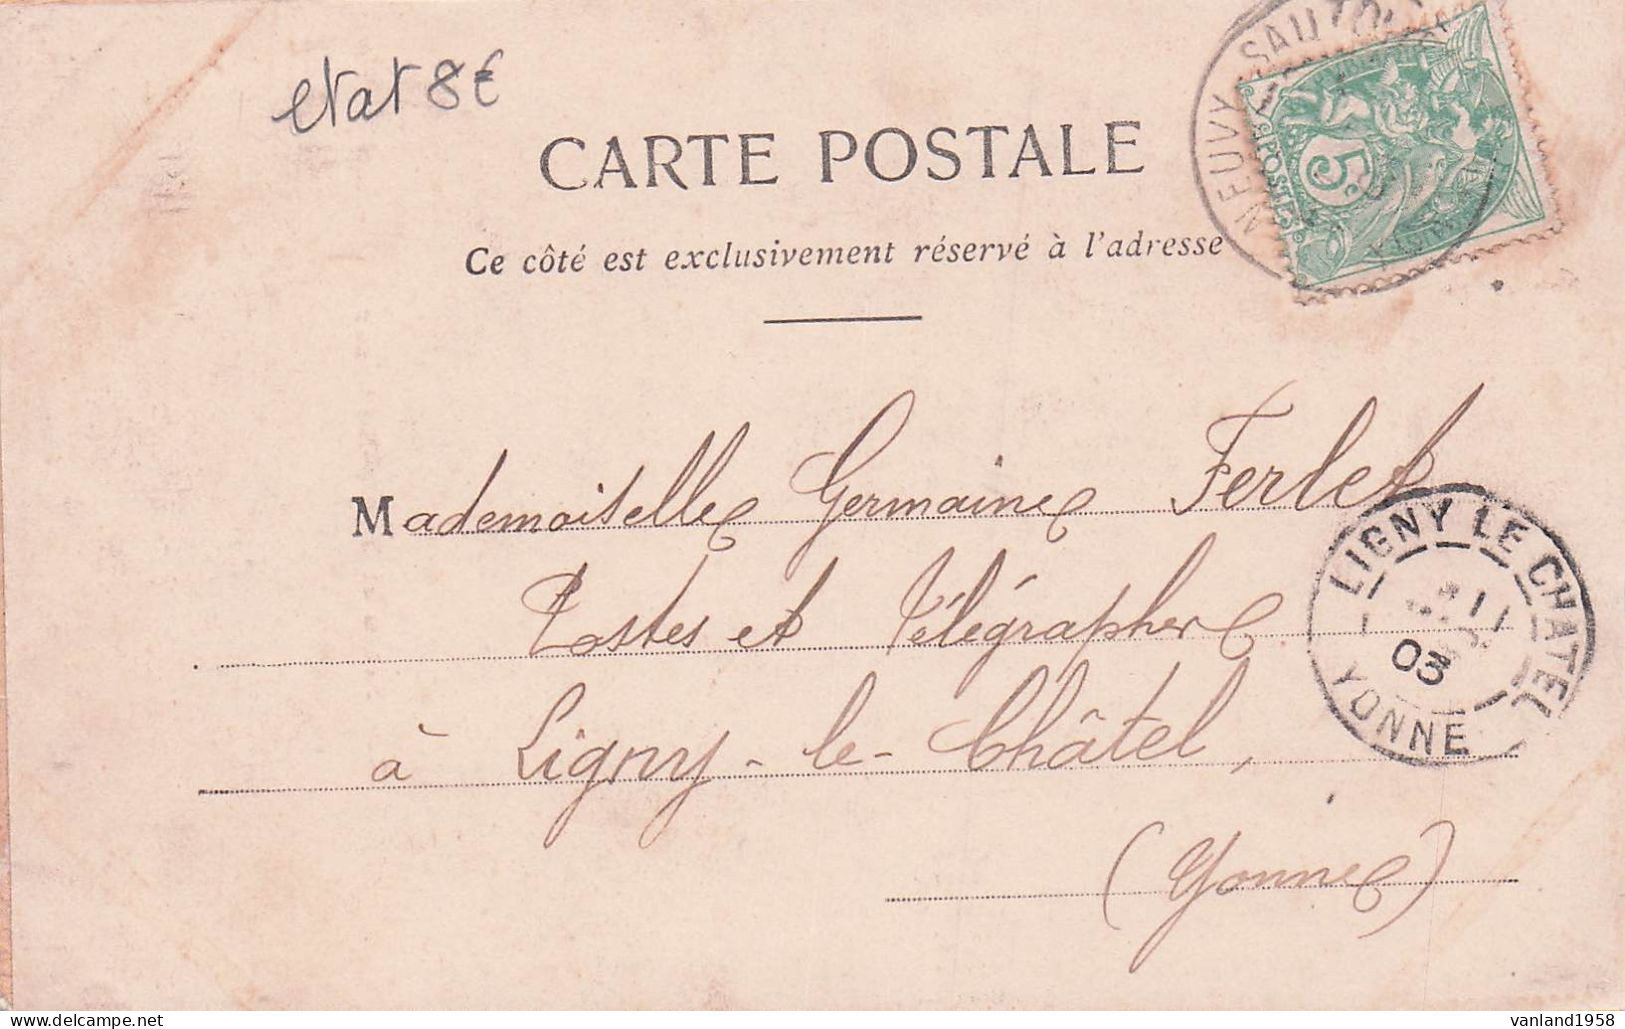 etat 8€
NEUVY SAUTOUR
5c
POSTES
CARTE POSTALE
Ce côté est exclusivement réservé à l'adresse
Mademoiselle Germaine Ferlet
Postes et Télégraphe
à Ligny-le-Châtel,
(Yonne)
LIGNY LE CHATEL
11
03
YONNE
vanland1958